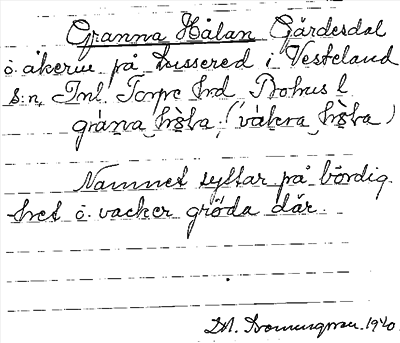 Granna Hålan Gärdesdal
o. åkern på Kissered i Västerland
s:n, Inl. Torpe hrd, Bohus l
gràna hø̀la. (vàkra hø̀la)
Namnet syftar på bördig
het o. vacker gröda där.
1940.